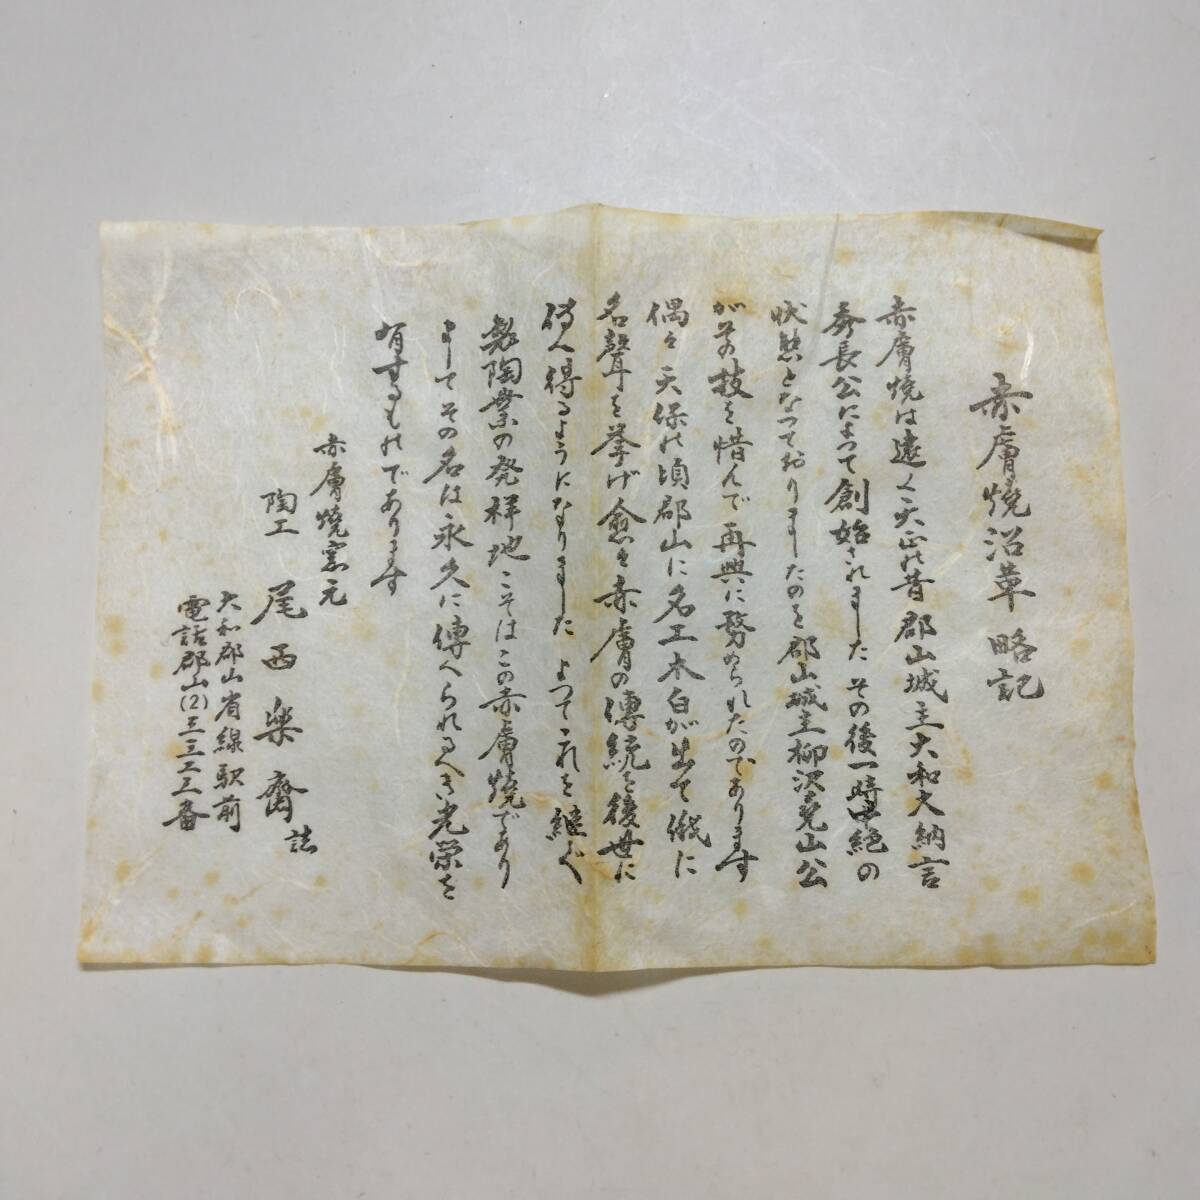 赤膚焼沿革略記
赤膚焼は遠く天正の昔郡山城主大和大納言
秀長公によつて創始されました その後一時中絶の
状態となつておりましたのを郡山城主柳沢尭山公
がその技を惜んで再興に務められたのであります
偶々天保の頃郡山に名工木白が出て俄に
名聲を挙げ愈々赤膚の傳統を後世に
傳へ得るようになりました よつてこれを継ぐ
製陶業の発祥地こそはこの赤膚焼であり
ましてその名は永久に傳へられるべき光栄を
有するものであります
赤膚焼窯元
陶工 尾西楽斎 誌
大和郡山省線駅前
電話郡山(2)三三三三番